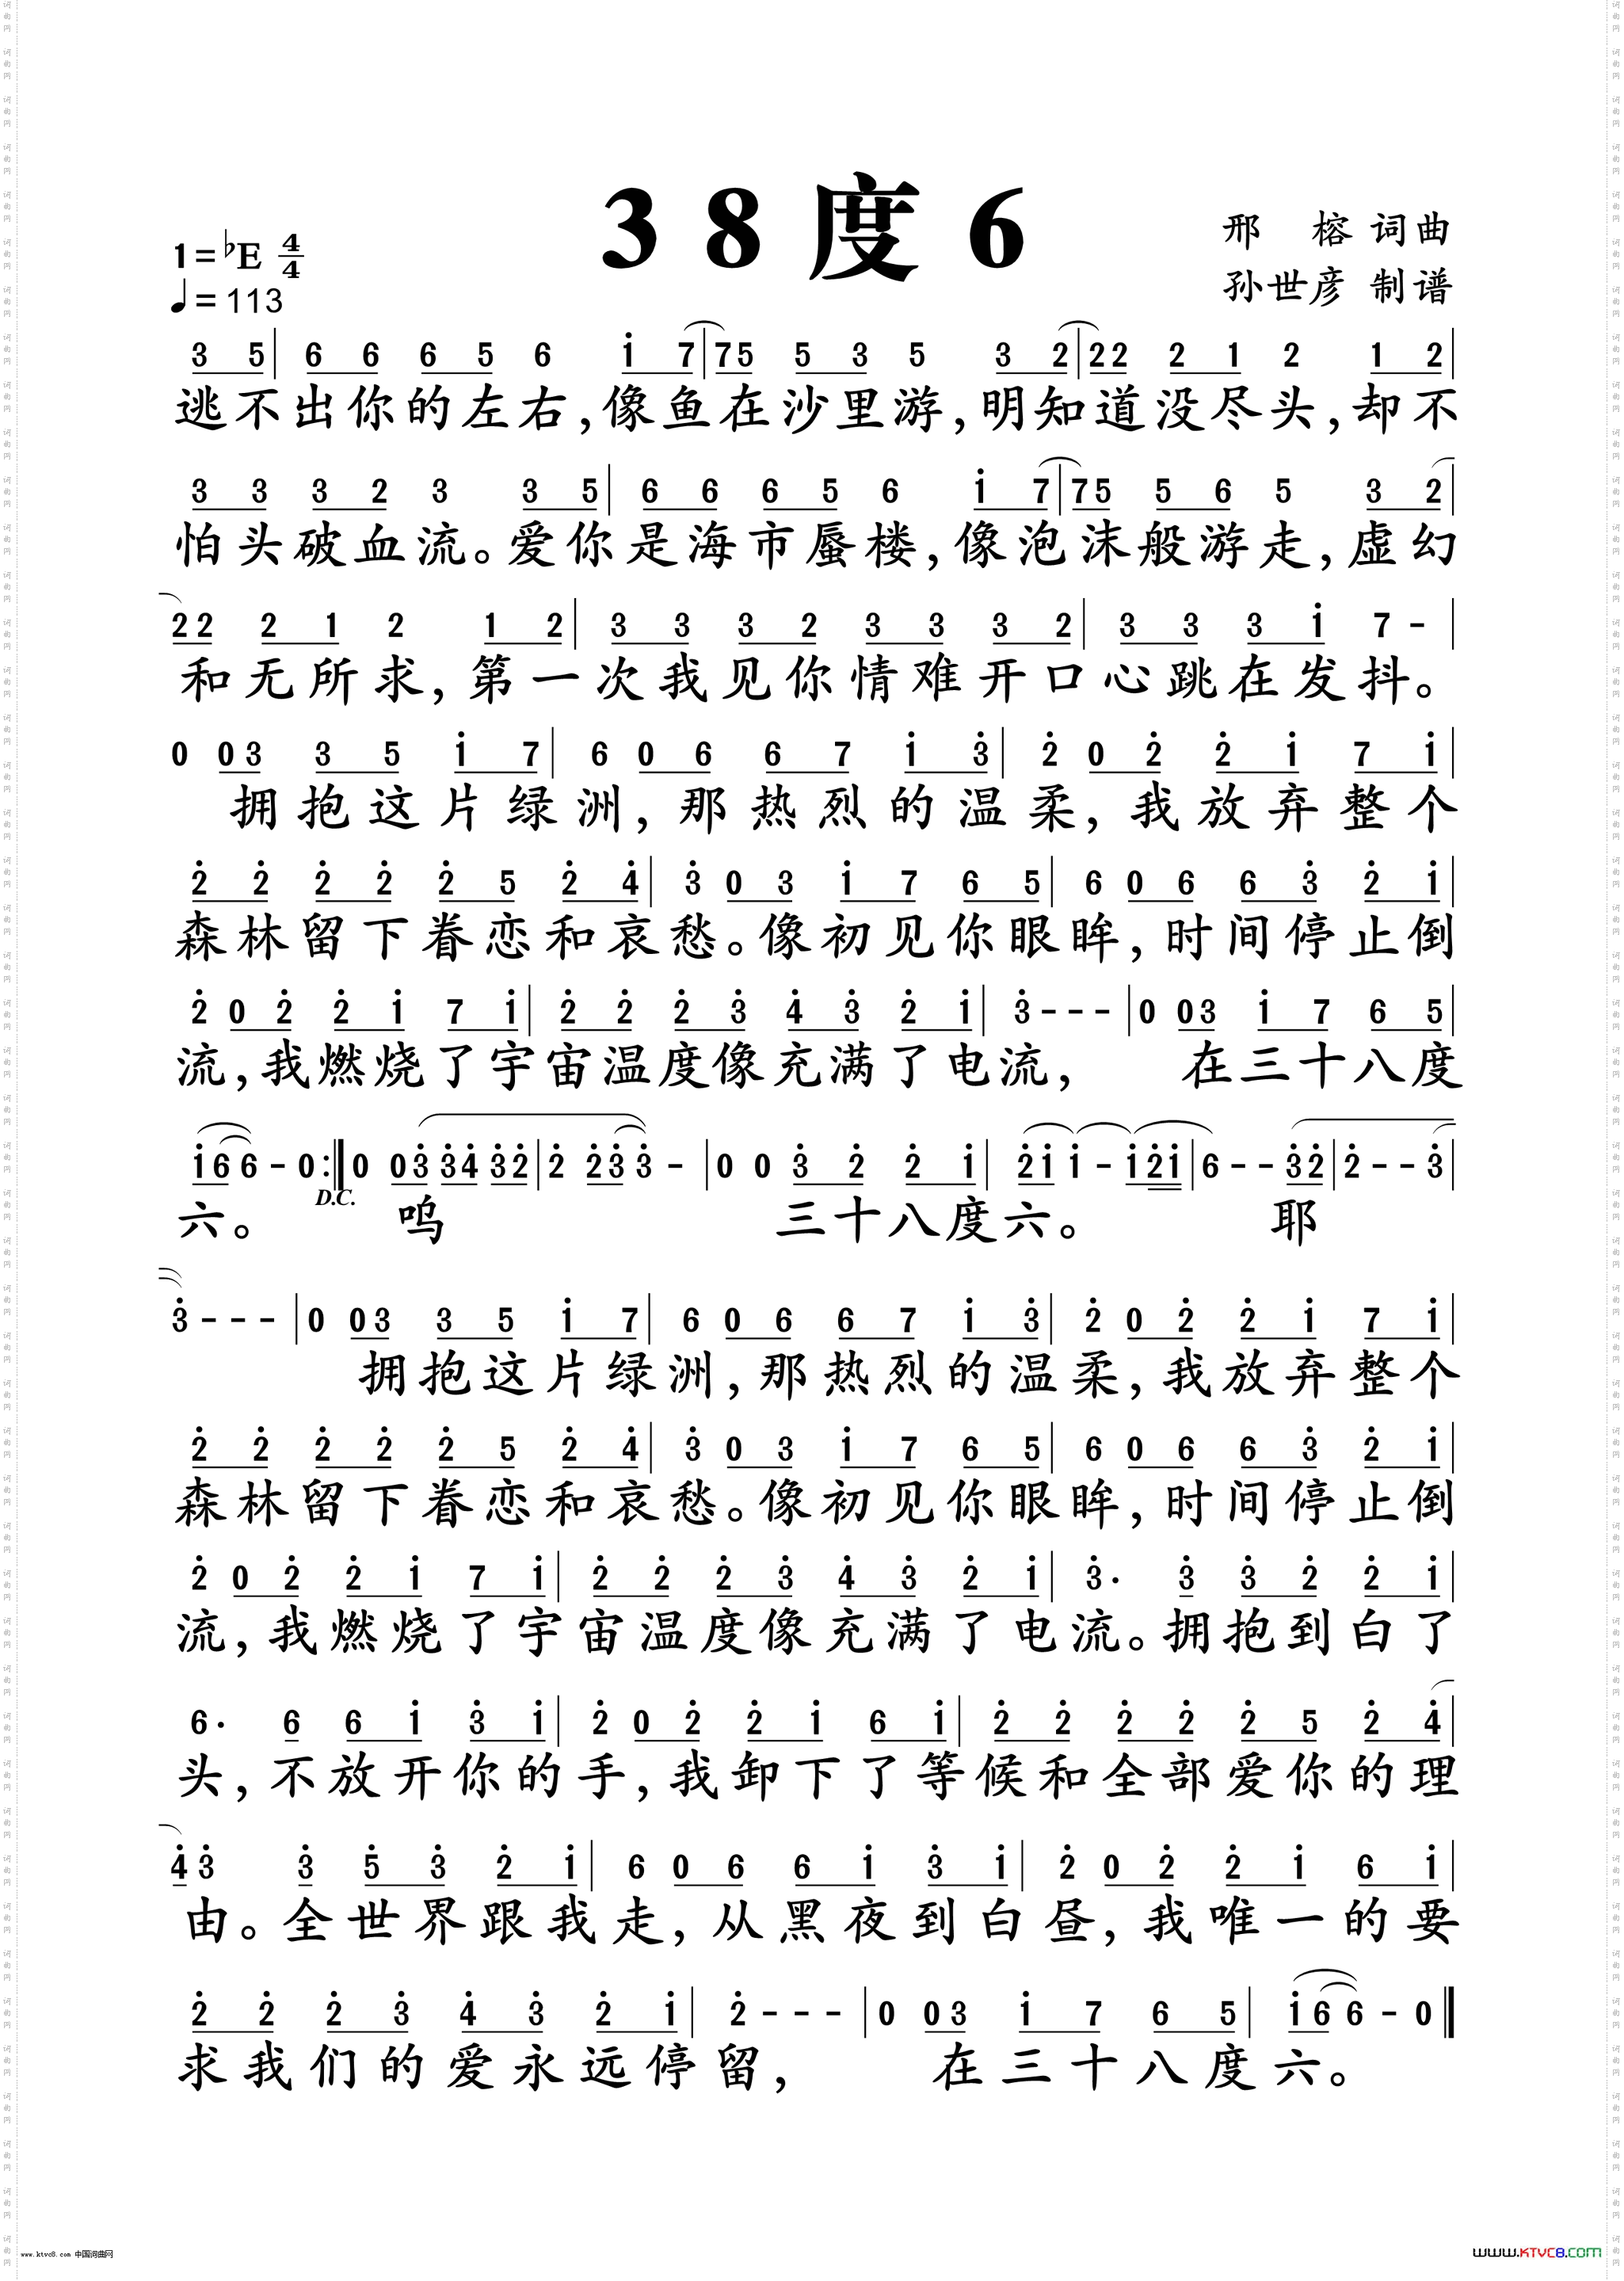 38度6
1=♭E 4/4
♩=113
邢 榕 词曲
孙世彦 制谱
3 5 | 6 6 6 5 6 i 7 | 7 5 5 3 5 3 2 | 2 2 2 1 2 1 2 |
逃不出你的左右,像鱼在沙里游,明知道没尽头,却不
3 3 3 2 3 3 5 | 6 6 6 5 6 i 7 | 7 5 5 6 5 3 2 |
怕头破血流。爱你是海市蜃楼,像泡沫般游走,虚幻
2 2 2 1 2 1 2 | 3 3 3 2 3 3 3 2 | 3 3 3 i 7 - |
和无所求,第一次我见你情难开口心跳在发抖。
0 0 3 3 5 i 7 | 6 0 6 6 7 i 3̇ | 2̇ 0 2̇ 2̇ i 7 i |
拥抱这片绿洲,那热烈的温柔,我放弃整个
2̇ 2̇ 2̇ 2̇ 2̇ 5 2̇ 4̇ | 3̇ 0 3 i 7 6 5 | 6 0 6 6 3̇ 2̇ i |
森林留下眷恋和哀愁。像初见你眼眸,时间停止倒
2̇ 0 2̇ 2̇ i 7 i | 2̇ 2̇ 2̇ 3̇ 4̇ 3̇ 2̇ i | 3̇ - - - | 0 0 3 i 7 6 5 |
流,我燃烧了宇宙温度像充满了电流, 在三十八度
i 6 6 - 0 :‖ 0 0 3̇ 3̇ 4̇ 3̇ 2̇ | 2̇ 2̇ 3̇ 3̇ - | 0 0 3̇ 2̇ 2̇ i | 2̇ i i - i 2̇ i | 6 - - 3̇ 2̇ | 2̇ - - 3̇ |
D.C.
六。 呜 三十八度六。 耶
3̇ - - - | 0 0 3 3 5 i 7 | 6 0 6 6 7 i 3̇ | 2̇ 0 2̇ 2̇ i 7 i |
拥抱这片绿洲,那热烈的温柔,我放弃整个
2̇ 2̇ 2̇ 2̇ 2̇ 5 2̇ 4̇ | 3̇ 0 3 i 7 6 5 | 6 0 6 6 3̇ 2̇ i |
森林留下眷恋和哀愁。像初见你眼眸,时间停止倒
2̇ 0 2̇ 2̇ i 7 i | 2̇ 2̇ 2̇ 3̇ 4̇ 3̇ 2̇ i | 3̇· 3̇ 3̇ 2̇ 2̇ i |
流,我燃烧了宇宙温度像充满了电流。拥抱到白了
6· 6 6 i 3̇ i | 2̇ 0 2̇ 2̇ i 6 i | 2̇ 2̇ 2̇ 2̇ 2̇ 5 2̇ 4̇ |
头,不放开你的手,我卸下了等候和全部爱你的理
4̇ 3̇ 3̇ 5̇ 3̇ 2̇ i | 6 0 6 6 i 3̇ i | 2̇ 0 2̇ 2̇ i 6 i |
由。全世界跟我走,从黑夜到白昼,我唯一的要
2̇ 2̇ 2̇ 3̇ 4̇ 3̇ 2̇ i | 2̇ - - - | 0 0 3 i 7 6 5 | i 6 6 - 0 ‖
求我们的爱永远停留, 在三十八度六。
www.ktvc8.com 中国词曲网
WWW.KTVC8.COM